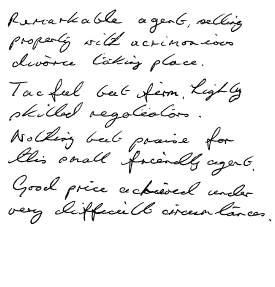 Remarkable agent, selling
property with acrimonious
divorce taking place.
Tactful but firm. Highly
skilled negotiators.
Nothing but praise for
this small friendly agent.
Good price achieved under
very difficult circumstances.